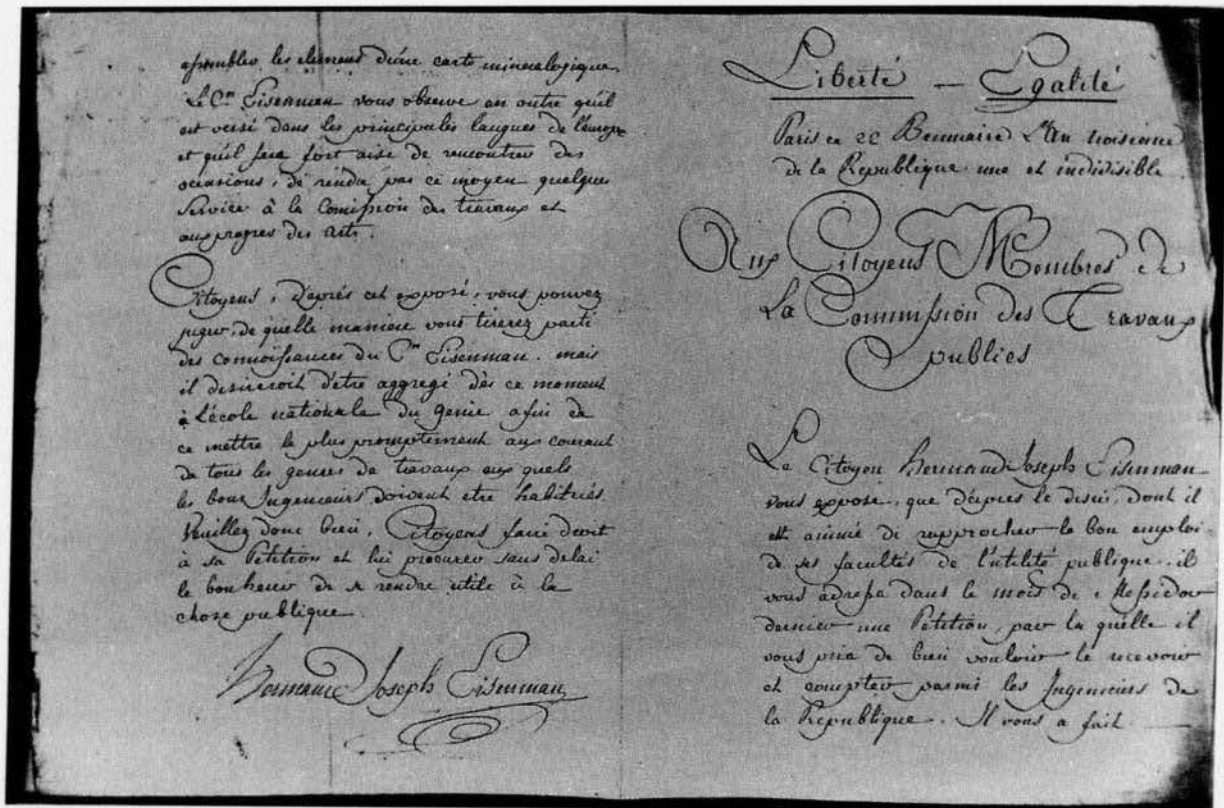 assembler les element d'une carte mineralogique.
Le C.en Eisenman vous observe en outre qu'il
est versé dans les principales langues de l'europe
et qu'il sera fort aise de rencontrer des
occasions, de rendre par ce moyen quelques
Service à la Comission des travaux et
aux progres des arts.
Citoyens, d'après cet exposé, vous pouvez
juger, de quelle maniere vous tirerez parti
des connoissances du C.en Eisenman. mais
il desireroit d'être aggregé dès ce moment
à L'école nationale du genie afin de
ce mettre le plus promptement aux courant
de tous les genres de travaux aux quels
les bons Ingenieurs doivent etre habitués.
Veuillez donc bien, Citoyens faire droit
à sa Petition et lui procurer sans delai
le bonheur de se rendre utile à la
chose publique.
Hermand Joseph Eisenman
Liberté — Egalité
Paris ce 22 Brumaire L'An troisieme
de la Republique une et indivisible
Aux Citoyens Membres de
La Commission des Travaux
publics
Le Citoyen Hermand Joseph Eisenman
vous expose, que d'après le desir, dont il
est animé de rapprocher le bon emploi
de ses facultés de l'utilité publique. il
vous adressa dans le mois de Messidor
dernier une Petition, par la quelle il
vous pria de bien vouloir le recevoir
et compter parmi les Ingenieurs de
la Republique. Il vous a fait